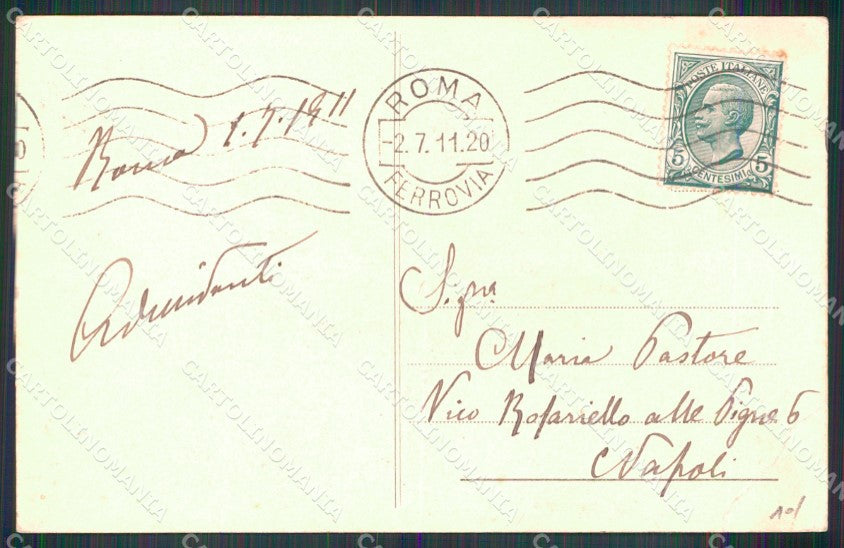 Roma 1.7.1911
ROMA
-2.7.11.20
FERROVIA
POSTE ITALIANE
5 5
CENTESIMI
S.gra
Maria Pastore
Vico Rosariello alle Pigne 6
Napoli
CARTOLINOMANIA